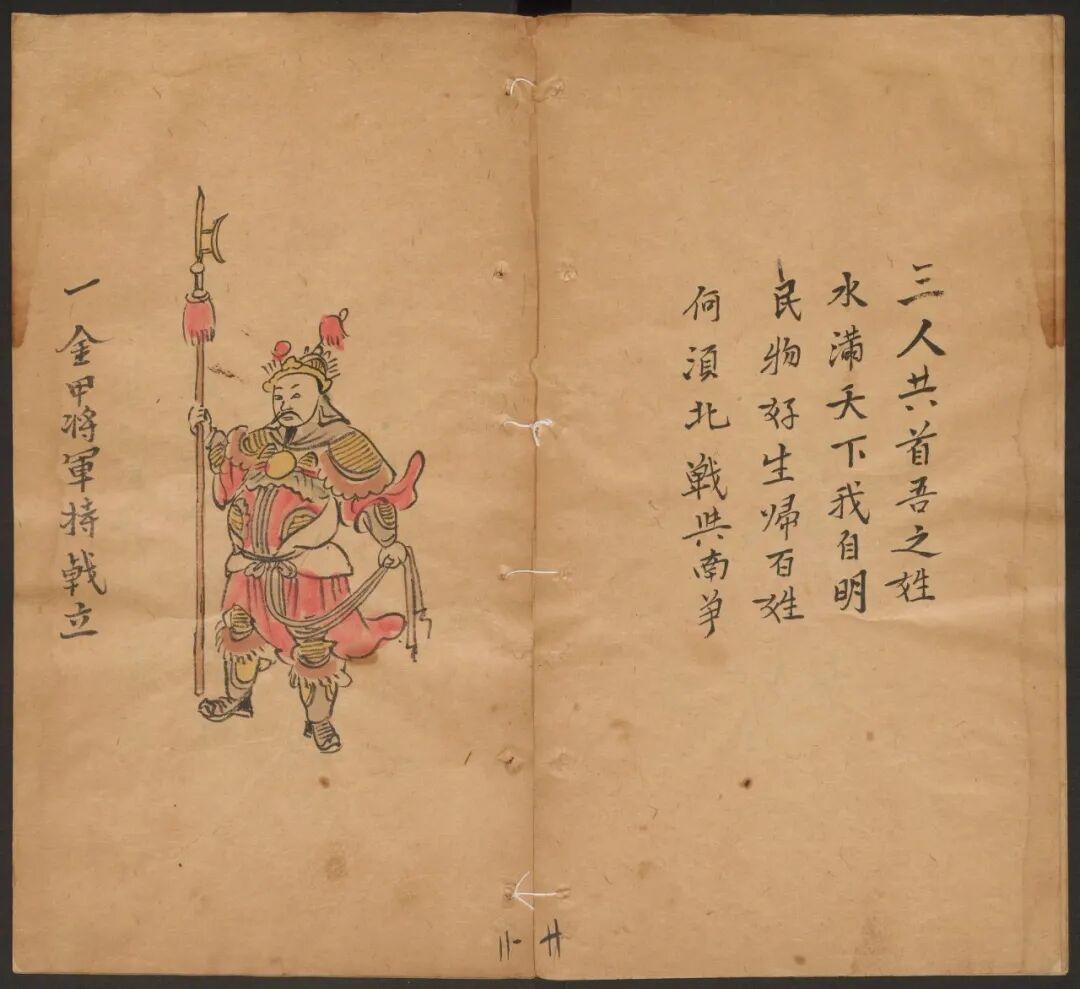 三人共首吾之姓
水滿天下我自明
民物好生歸百姓
何須北戦共南爭
一金甲将軍持戟立